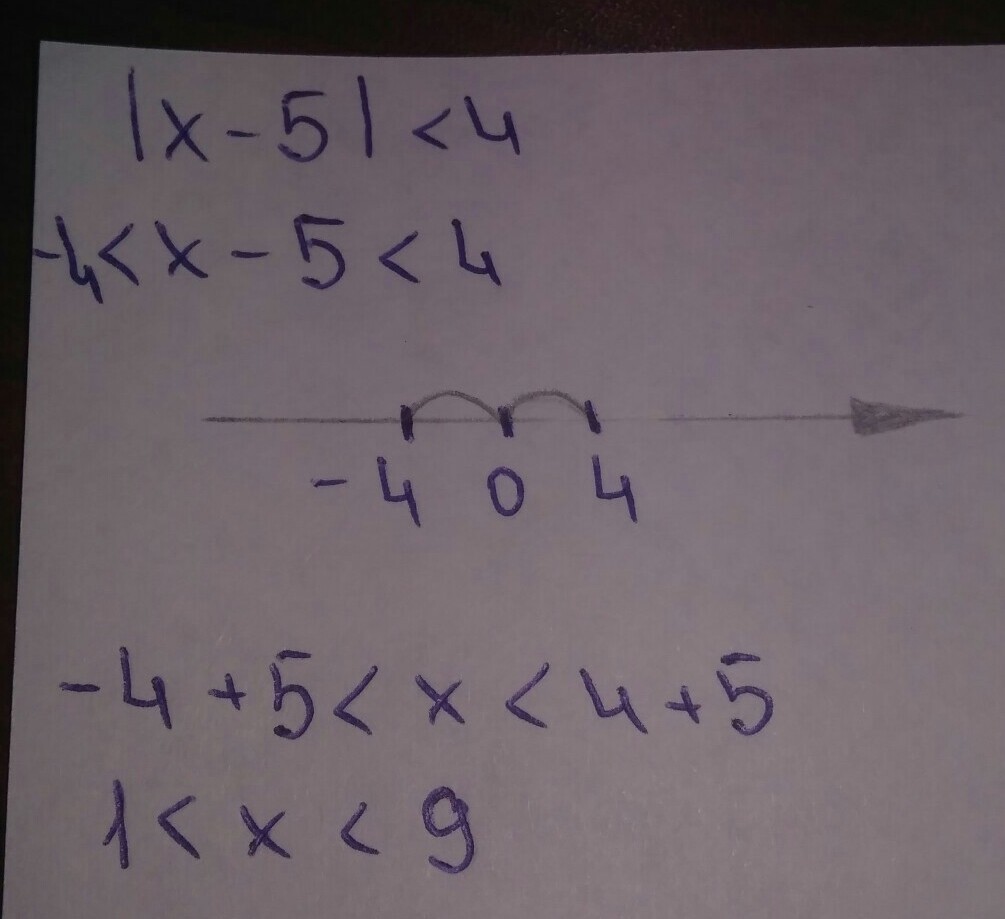 |x-5|<4
-4<x-5<4
-4 0 4
-4+5<x<4+5
1<x<9